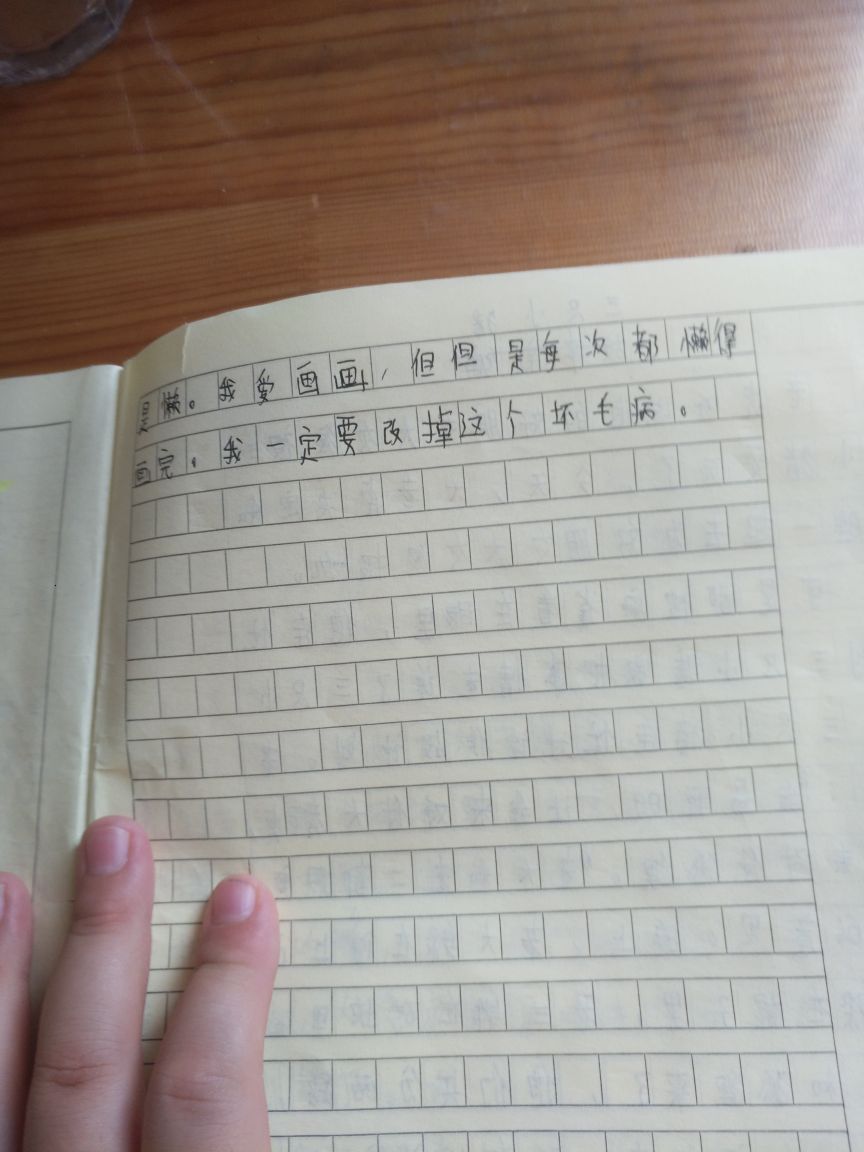 懒。我爱画画，但但是每次都懒得
画完。我一定要改掉这个坏毛病。